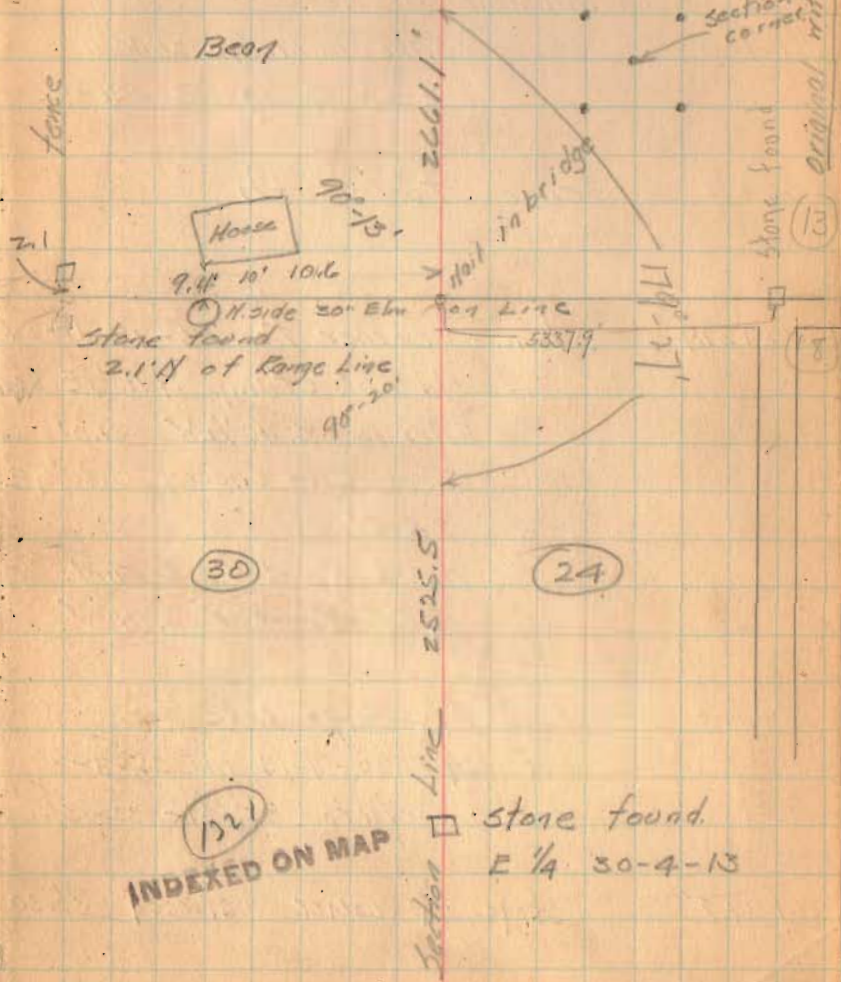 Bean
fence
2661.1'
section
corner
original
stone found
13
Nail in bridge
90°-13'
House
2.1
9.4' 10' 10.6
N. side 30" Elm on Line
5337.9'
stone found
2.1' N of Range Line
90°-20'
18
30
24
2525.5
Section Line
1321
INDEXED ON MAP
stone found.
E 1/4 30-4-13